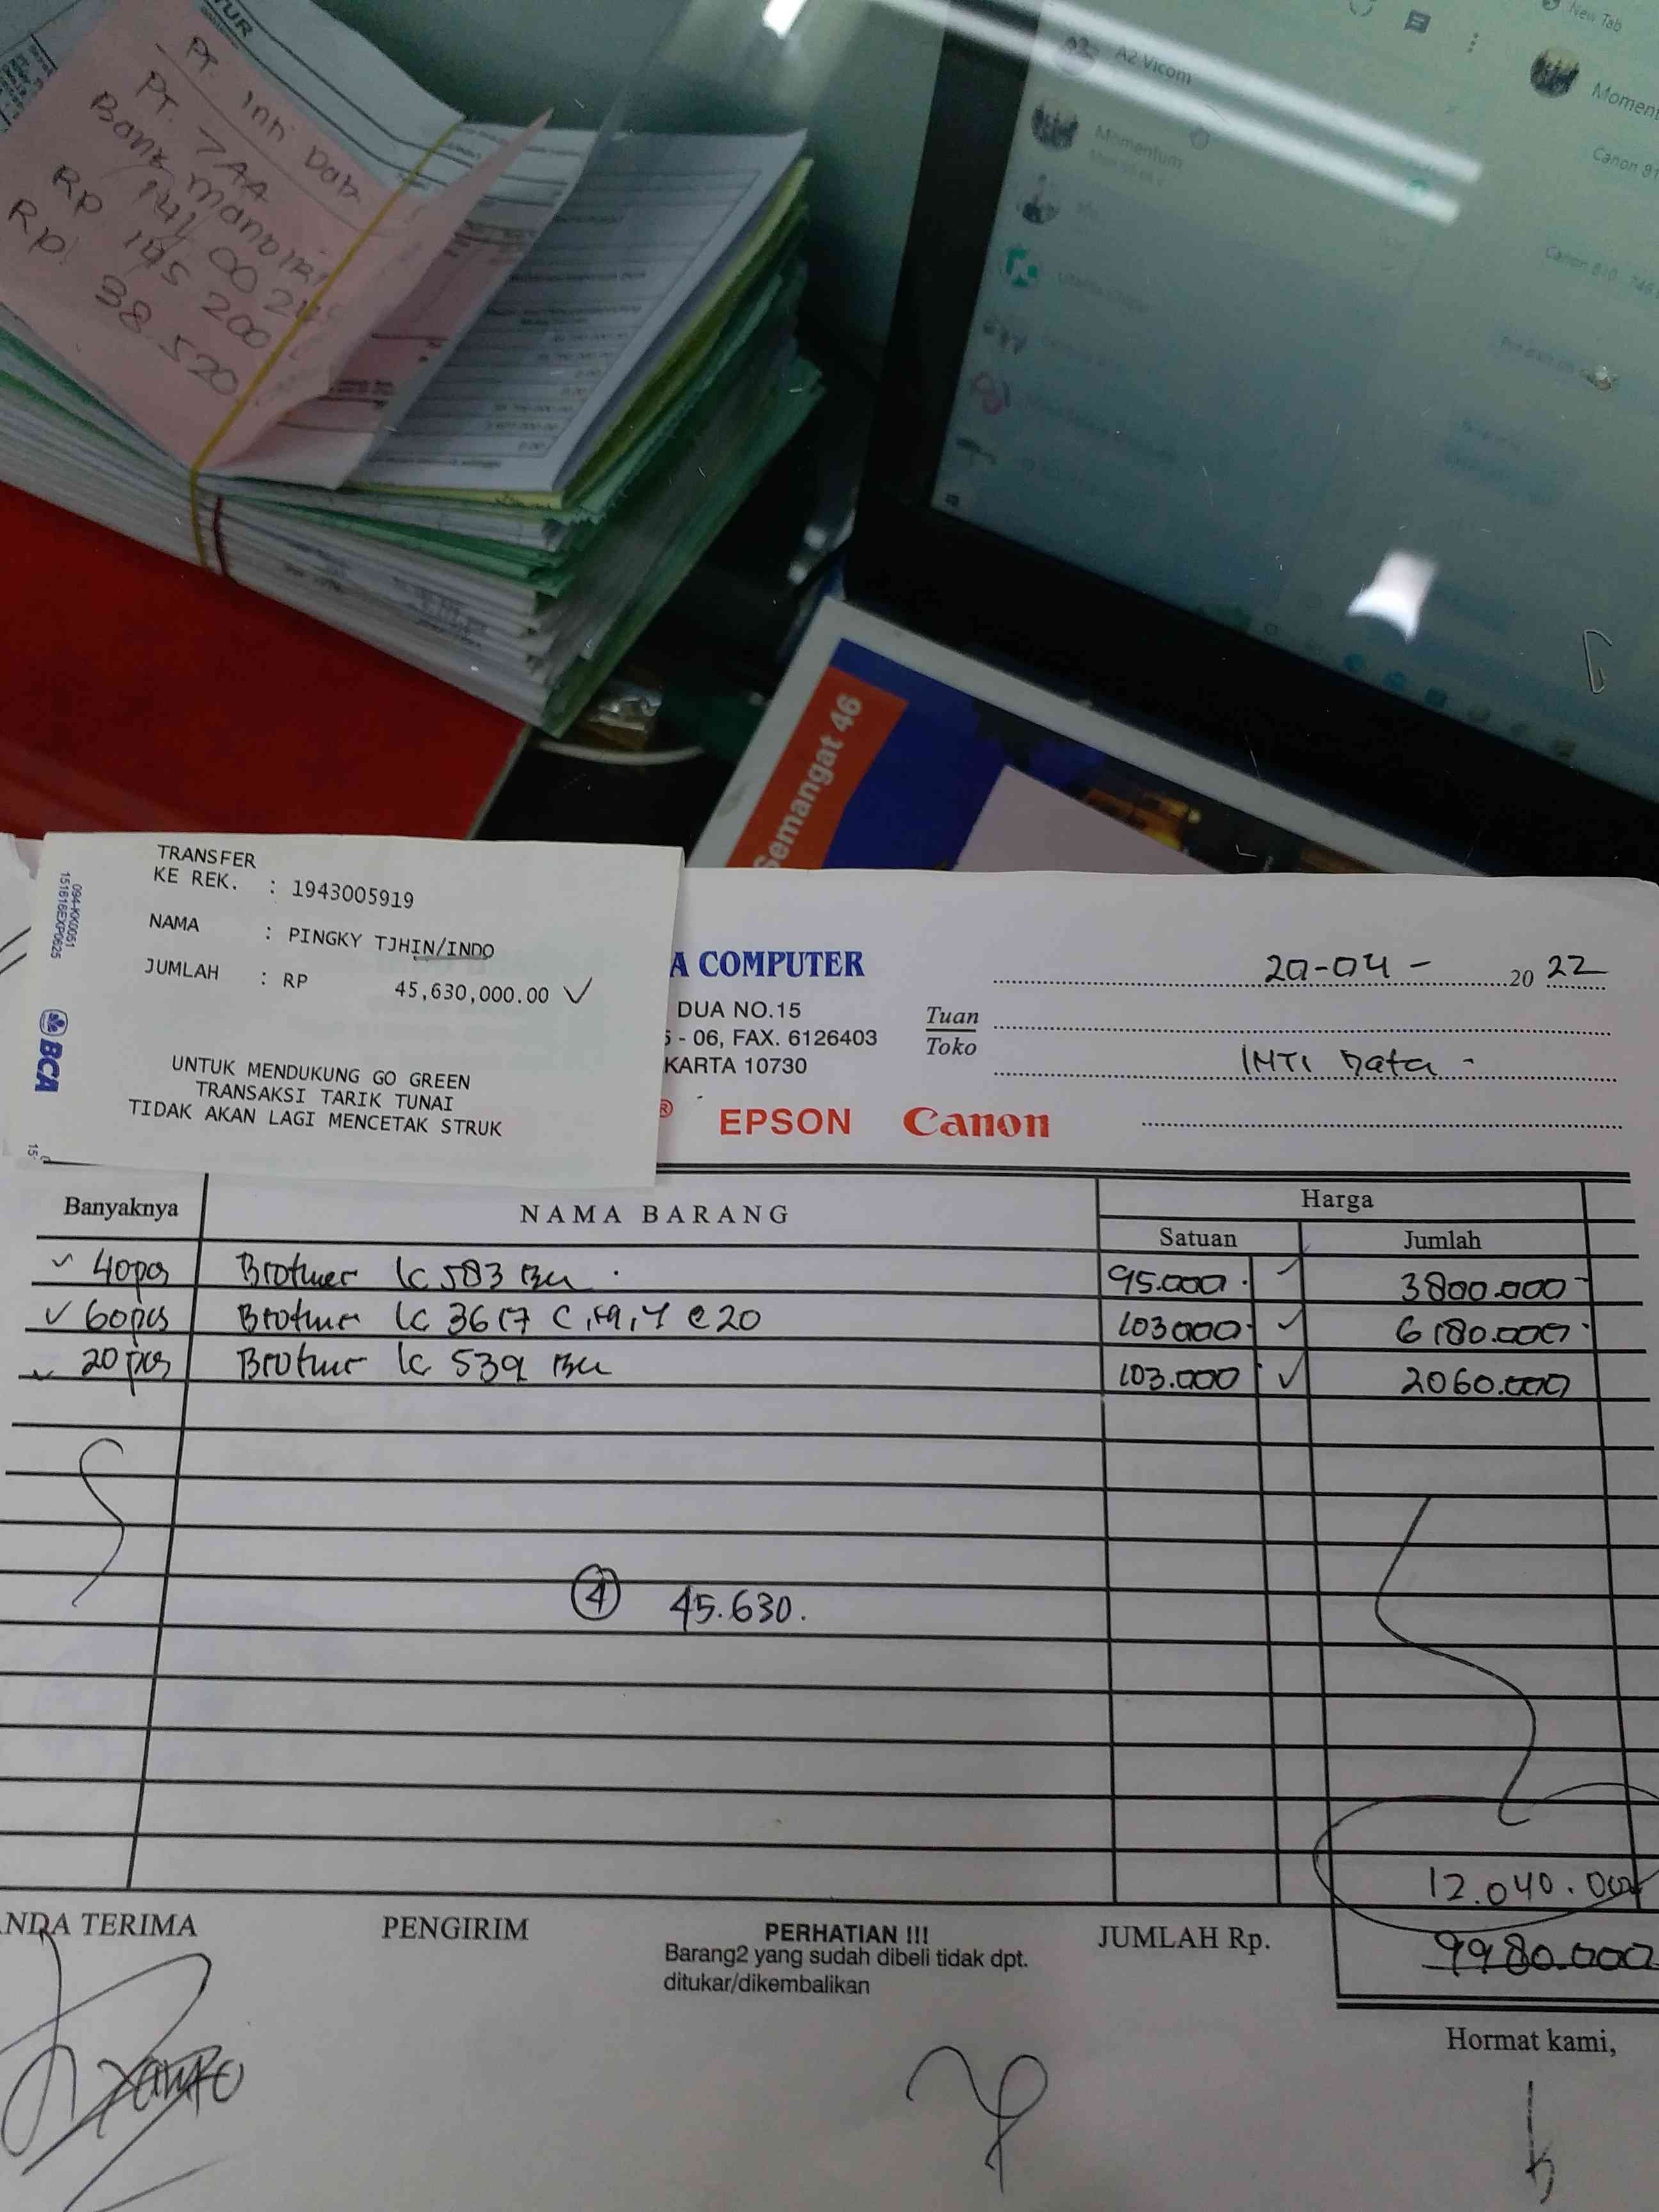 TUR
PT. Inti Data
PT. TAA
Bank Mandiri
141 00 24
Rp 195 200
Rp. 38.520
New Tab
A2 Vicom
Momentum
Moment
Canon 81
Canon 810
Semangat 46
TRANSFER
KE REK. : 1943005919
NAMA : PINGKY TJHIN/INDO
JUMLAH : RP 45,630,000.00
UNTUK MENDUKUNG GO GREEN
TRANSAKSI TARIK TUNAI
TIDAK AKAN LAGI MENCETAK STRUK
094-KK0051
151616EXP0625
BCA
A COMPUTER
DUA NO.15
- 06, FAX. 6126403
KARTA 10730
® EPSON Canon
20-04- 20 22
Tuan
Toko
INTI Data -
Banyaknya NAMA BARANG Harga
Satuan Jumlah
40pcs Brother lc 583 Bk 95.000 3800.000
60pcs Brother lc 3617 C,M,Y @20 103000 6180.000
20pcs Brother lc 539 Bk 103.000 2060.000
4 45.630.
12.040.000
ANDA TERIMA PENGIRIM PERHATIAN !!! JUMLAH Rp. 9980.000
Barang2 yang sudah dibeli tidak dpt.
ditukar/dikembalikan
Hormat kami,